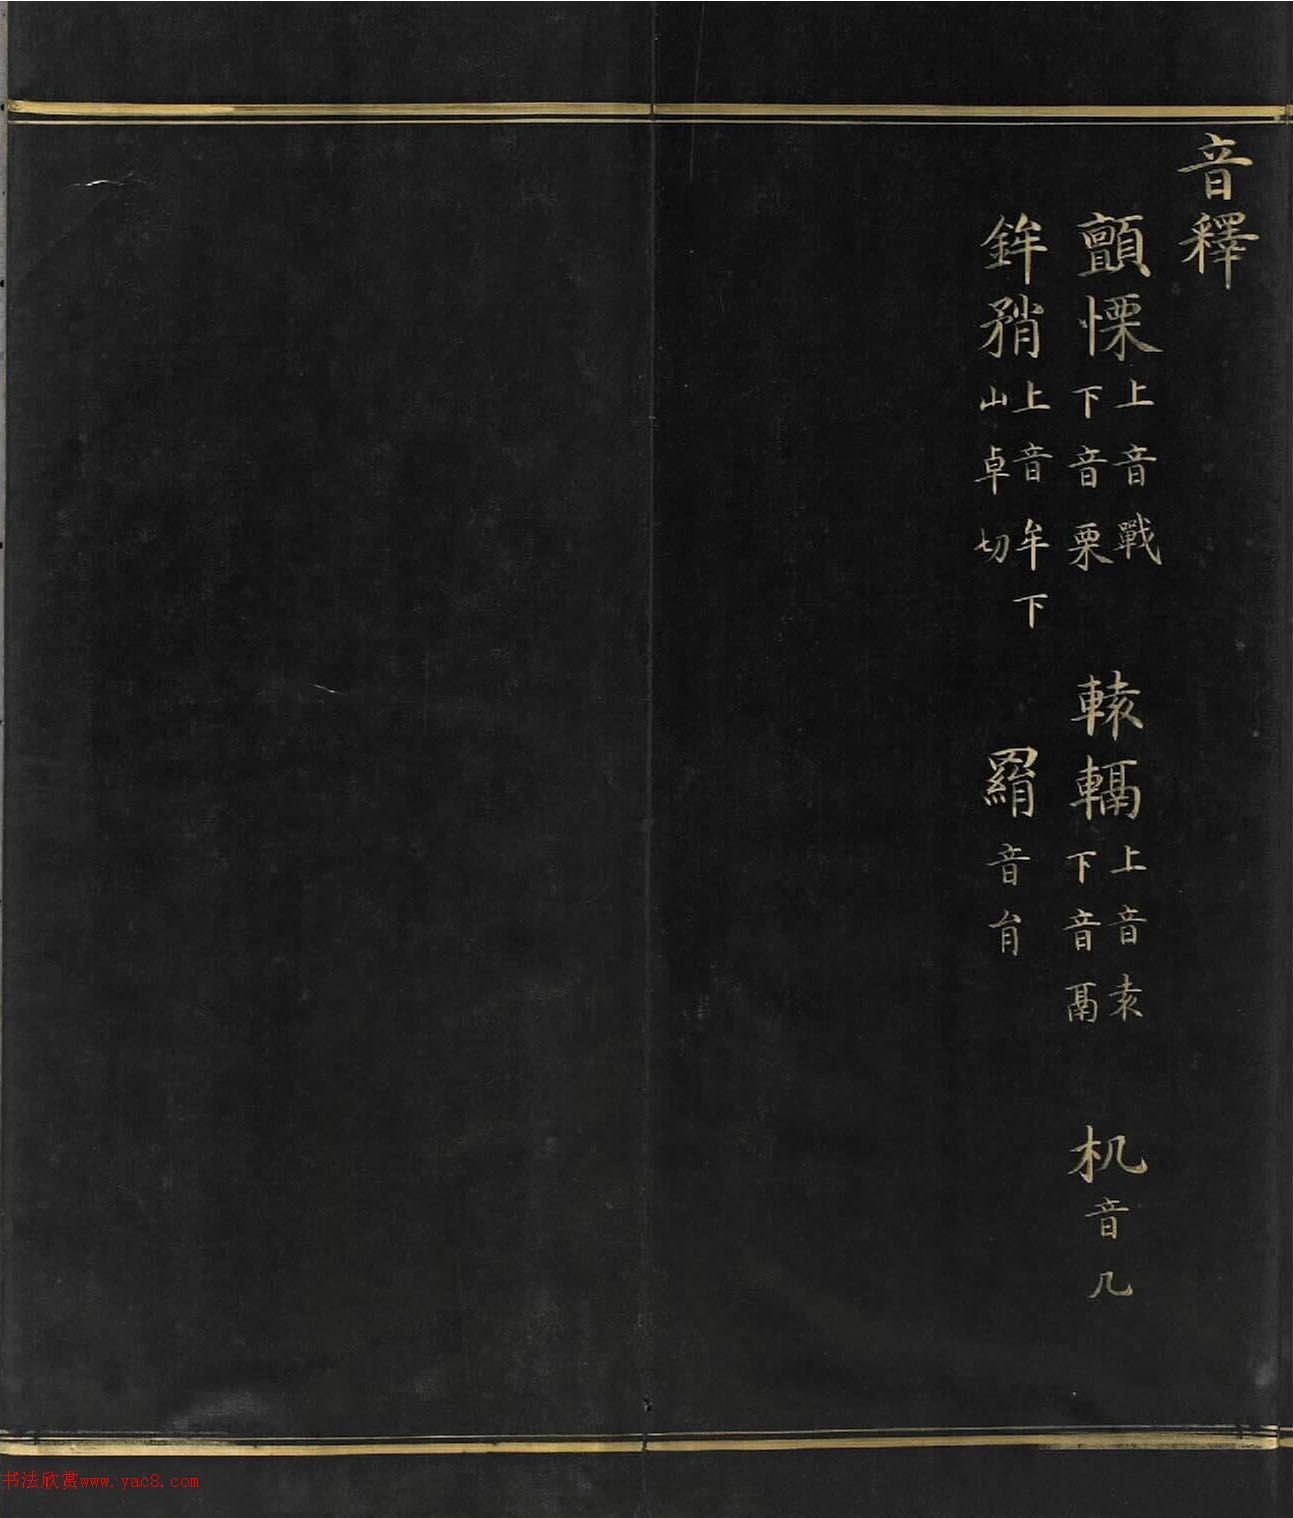 音釋
顫慄上音戰下音栗 轅轎上音袁下音鬲 机音几
鉾矟上音牟下山卓切 羂音肙
书法欣赏www.yac8.com